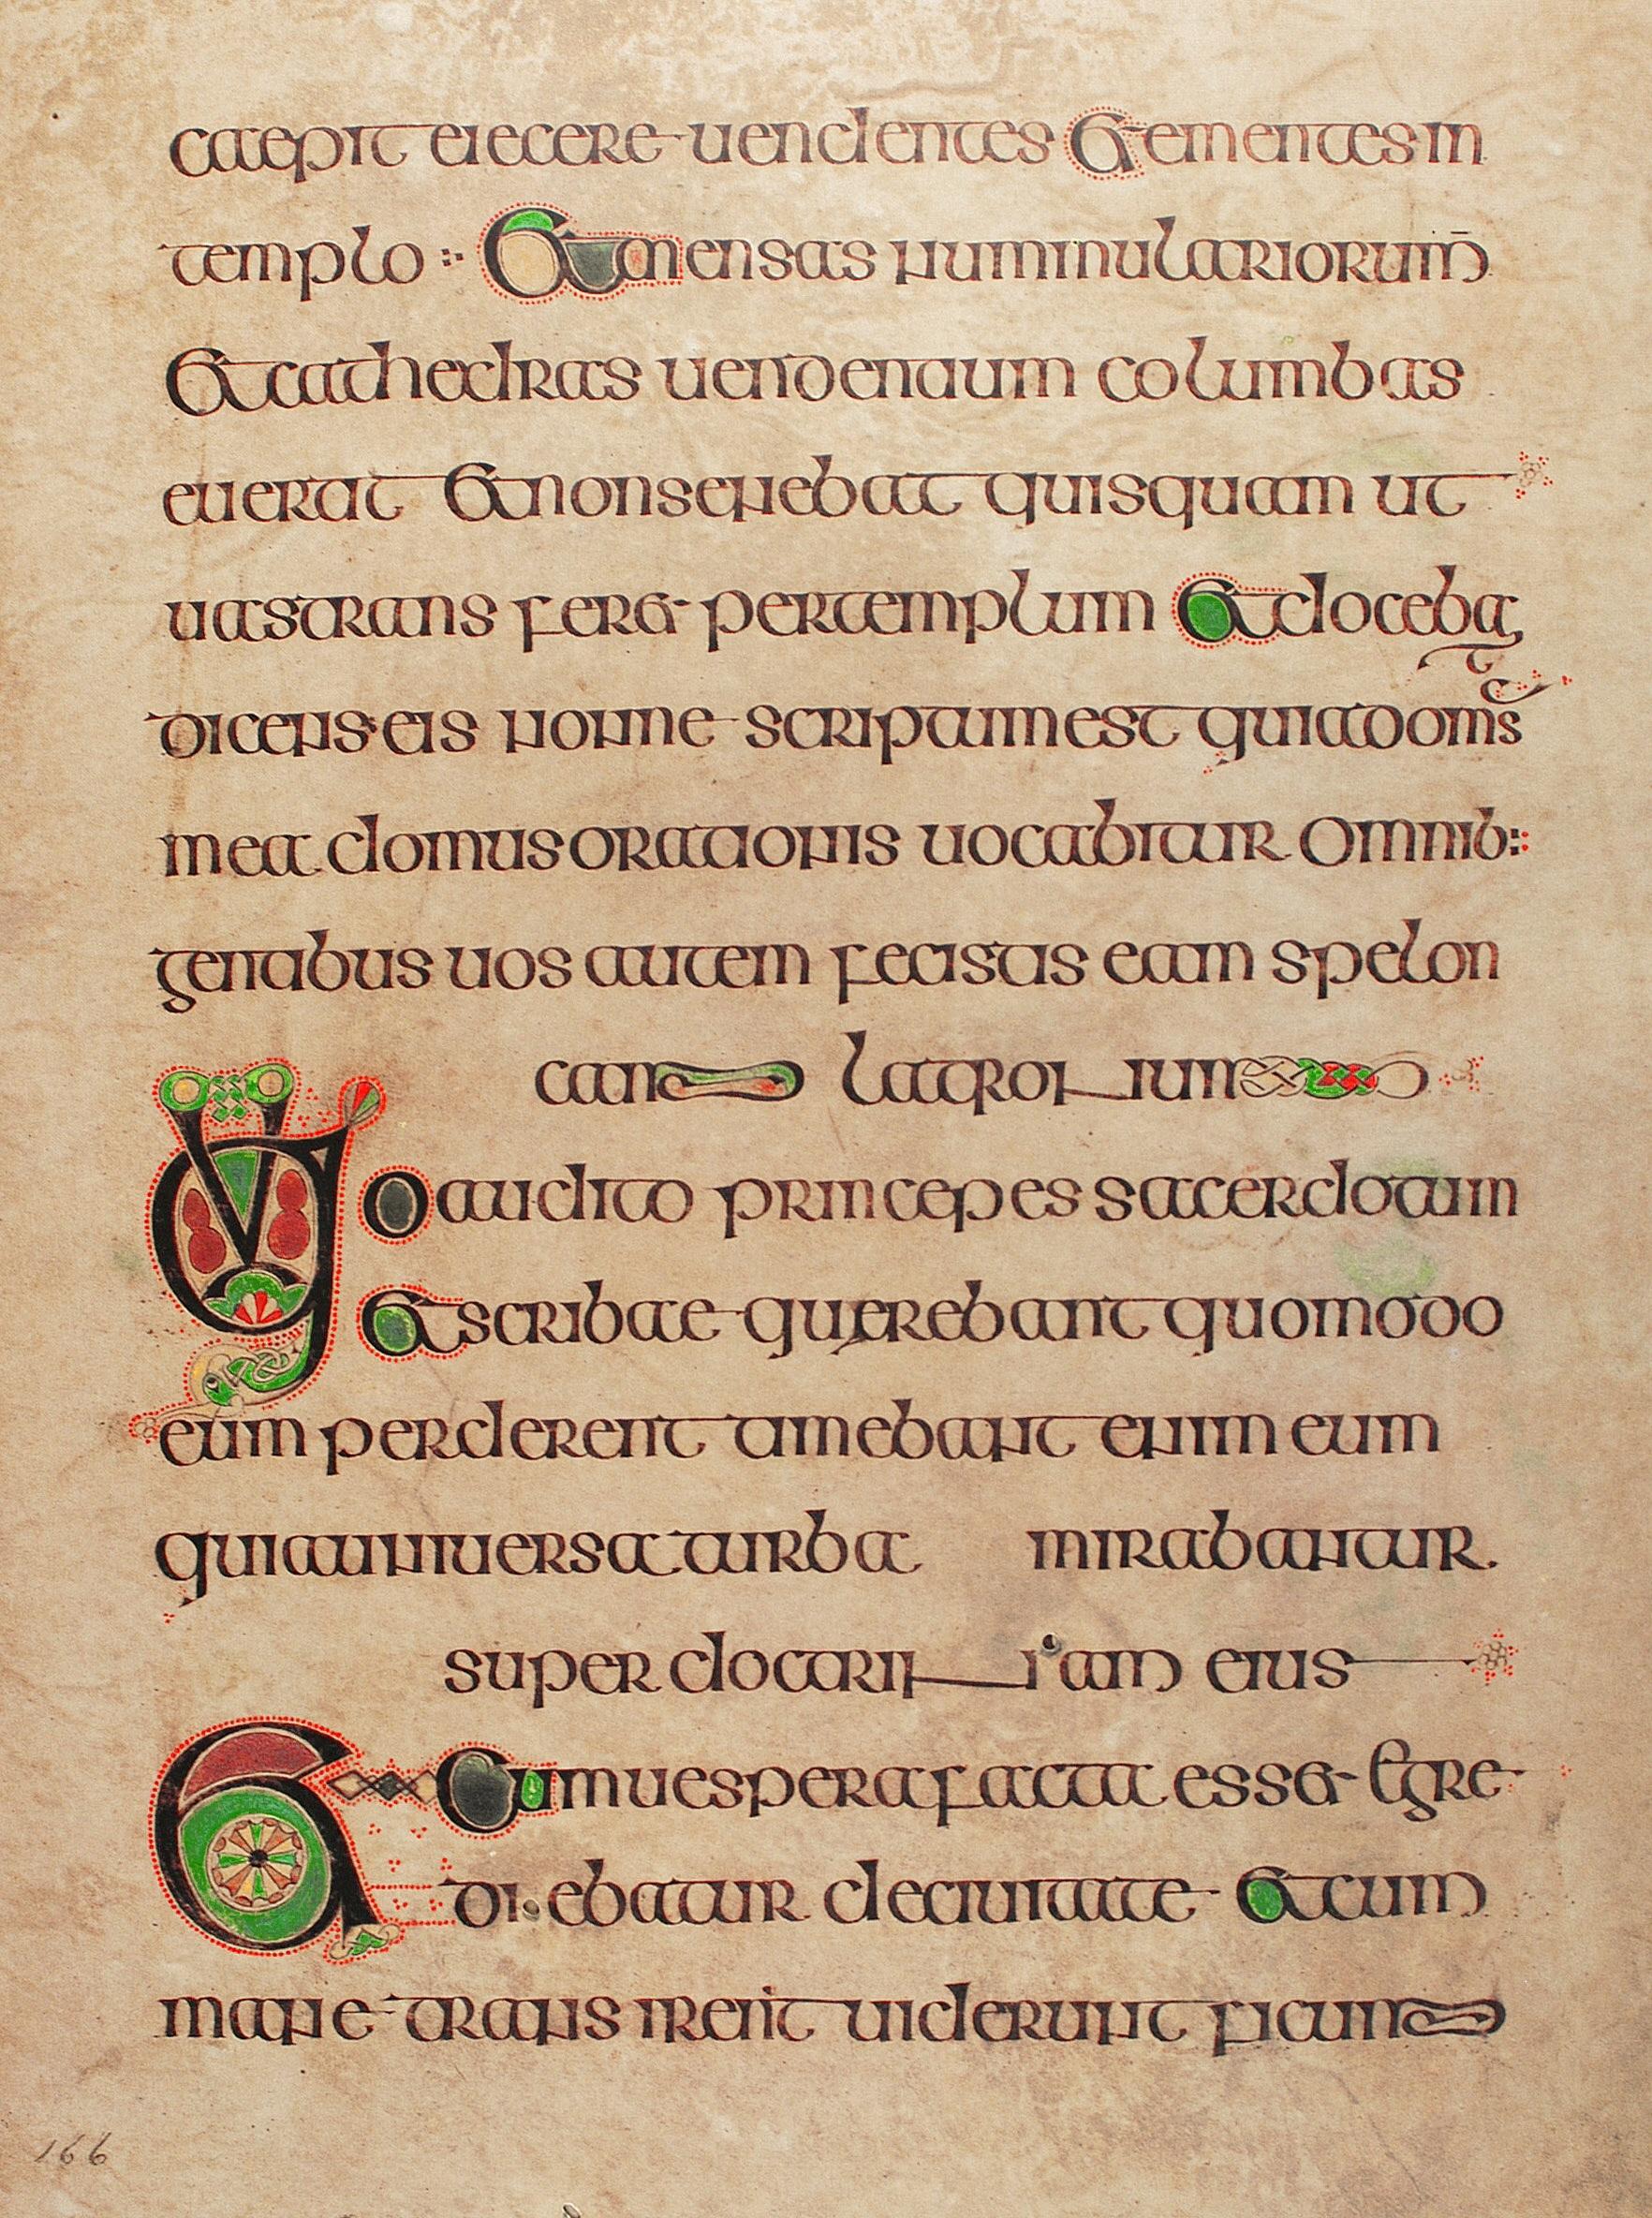 caepit eiecere uendentes et ementes in
templo et mensas numinulariorum̄
et cathedras uendentium columbas
euerat et non senebat quisquam ut
uas trans feret per templum et doceba
t
dicens eis nonne scriptum est quia doms̄
mea domus orationis uocabitur omnib:
gentibus uos autem fecistis eam spelon
cam latronium
Quo audito principes sacerdotum
et scribae querebant quomodo
eum perderent timebant enim eum
quia uniuersa turba mirabantur
super doctrinam eius
Et cum uespera facta esset egre
diebatur de ciuitate et cum
mane transirent uiderunt ficum
166